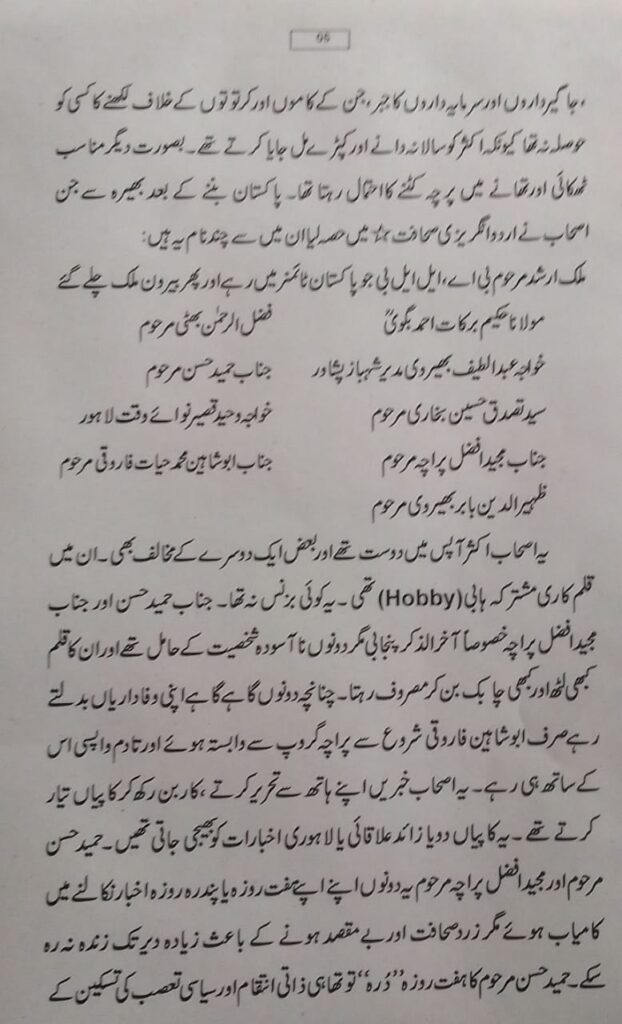 06
، جاگیرداروں اور سرمایہ داروں کا جبر، جن کے کاموں اور کرتوتوں کے خلاف لکھنے کا کسی کو
حوصلہ نہ تھا کیونکہ اکثر کو سالانہ دانے اور کپڑے مل جایا کرتے تھے۔ بصورت دیگر مناسب
ٹھکائی اور تھانے میں پرچہ کٹنے کا احتمال رہتا تھا۔ پاکستان بننے کے بعد بھیرہ سے جن
اصحاب نے اردو انگریزی صحافت میں حصہ لیا ان میں سے چند نام یہ ہیں:
ملک ارشد مرحوم بی اے، ایل ایل بی جو پاکستان ٹائمز میں رہے اور پھر بیرون ملک چلے گئے
مولانا حکیم برکات احمد بگویؒ فضل الرحمٰن بھٹی مرحوم
خواجہ عبد الطیف بھیروی مدیر شہباز پشاور جناب حمید حسن مرحوم
سید تصدق حسین بخاری مرحوم خواجہ وحید قصیر نوائے وقت لاہور
جناب مجید افضل پراچہ مرحوم جناب ابو شاہین محمد حیات فاروقی مرحوم
ظہیر الدین بابر بھیروی مرحوم
یہ اصحاب اکثر آپس میں دوست تھے اور بعض ایک دوسرے کے مخالف بھی۔ ان میں
قلم کاری مشترکہ ہابی (Hobby) تھی۔ یہ کوئی بزنس نہ تھا۔ جناب حمید حسن اور جناب
مجید افضل پراچہ خصوصاً آخر الذکر پنجابی مگر دونوں نا آسودہ شخصیت کے حامل تھے اور ان کا قلم
کبھی لٹھ اور کبھی چابک بن کر مصروف رہتا۔ چنانچہ دونوں گاہے گاہے اپنی وفاداریاں بدلتے
رہے صرف ابو شاہین فاروقی شروع سے پراچہ گروپ سے وابستہ ہوئے اور تادم واپسی اس
کے ساتھ ہی رہے۔ یہ اصحاب خبریں اپنے ہاتھ سے تحریر کرتے، کاربن رکھ کر کاپیاں تیار
کرتے تھے۔ یہ کاپیاں دو یا زائد علاقائی یا لاہوری اخبارات کو بھیجی جاتی تھیں۔ حمید حسن
مرحوم اور مجید افضل پراچہ مرحوم یہ دونوں اپنے اپنے ہفت روزہ یا پندرہ روزہ اخبار نکالنے میں
کامیاب ہوئے مگر زرد صحافت اور بے مقصد ہونے کے باعث زیادہ دیر تک زندہ نہ رہ
سکے۔ حمید حسن مرحوم کا ہفت روزہ ”دُرہ“ تو تھا ہی ذاتی انتقام اور سیاسی تعصب کی تسکین کے